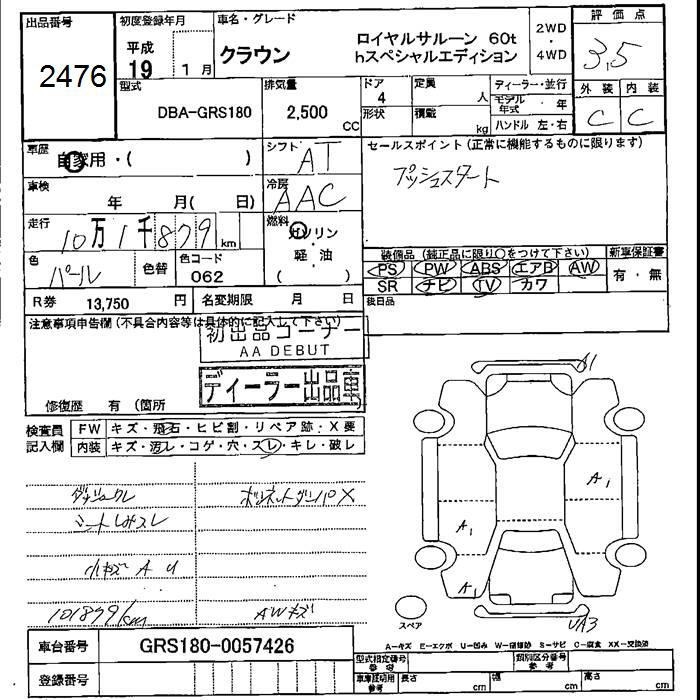 出品番号
2476
初度登録年月
平成
19 1月
車名・グレード
クラウン
ロイヤルサルーン 60t
hスペシャルエディション
2WD
・
4WD
評価点
3,5
外装 内装
C C
型式
DBA-GRS180
排気量
2,500
CC
ドア
4
形状
定員
人
積載
kg
ディーラー・並行
モデル
年式 ・年
ハンドル 左・右
車歴
自家用・( )
シフト
AT
セールスポイント(正常に機能するものに限ります)
プッシュスタート
車検
年 月( 日)
冷房
AAC
走行
10万1千879km
燃料
ガソリン
・
軽油
( )
色
パール
色替
色コード
062
装備品(純正品に限り〇をつけて下さい)
PS PW ABS エアB AW
SR ナビ TV カワ
新車保証書
有・無
R券 13,750 円
名変期限 月 日
後日品
注意事項申告欄(不具合内容等は具体的に記入して下さい)
初出品コーナー
AA DEBUT
ディーラー出品車
修復歴 有(箇所
検査員
記入欄
FW キズ・飛石・ヒビ割・リペア跡・X要
内装 キズ・汚レ・コゲ・穴・スレ・キレ・破レ
ボンネットダンパX
小キズ A U
101899/km
AWキズ
A1
A1
A1
A1
UA3
スペア
A-キズ E-エクボ U-凹み W-補修跡 S-サビ C-腐食 XX-交換済
車台番号
GRS180-0057426
登録番号
型式指定番号
参考
類別区分番号
参考
車庫証明用
参考
長さ cm
幅 cm
高さ cm